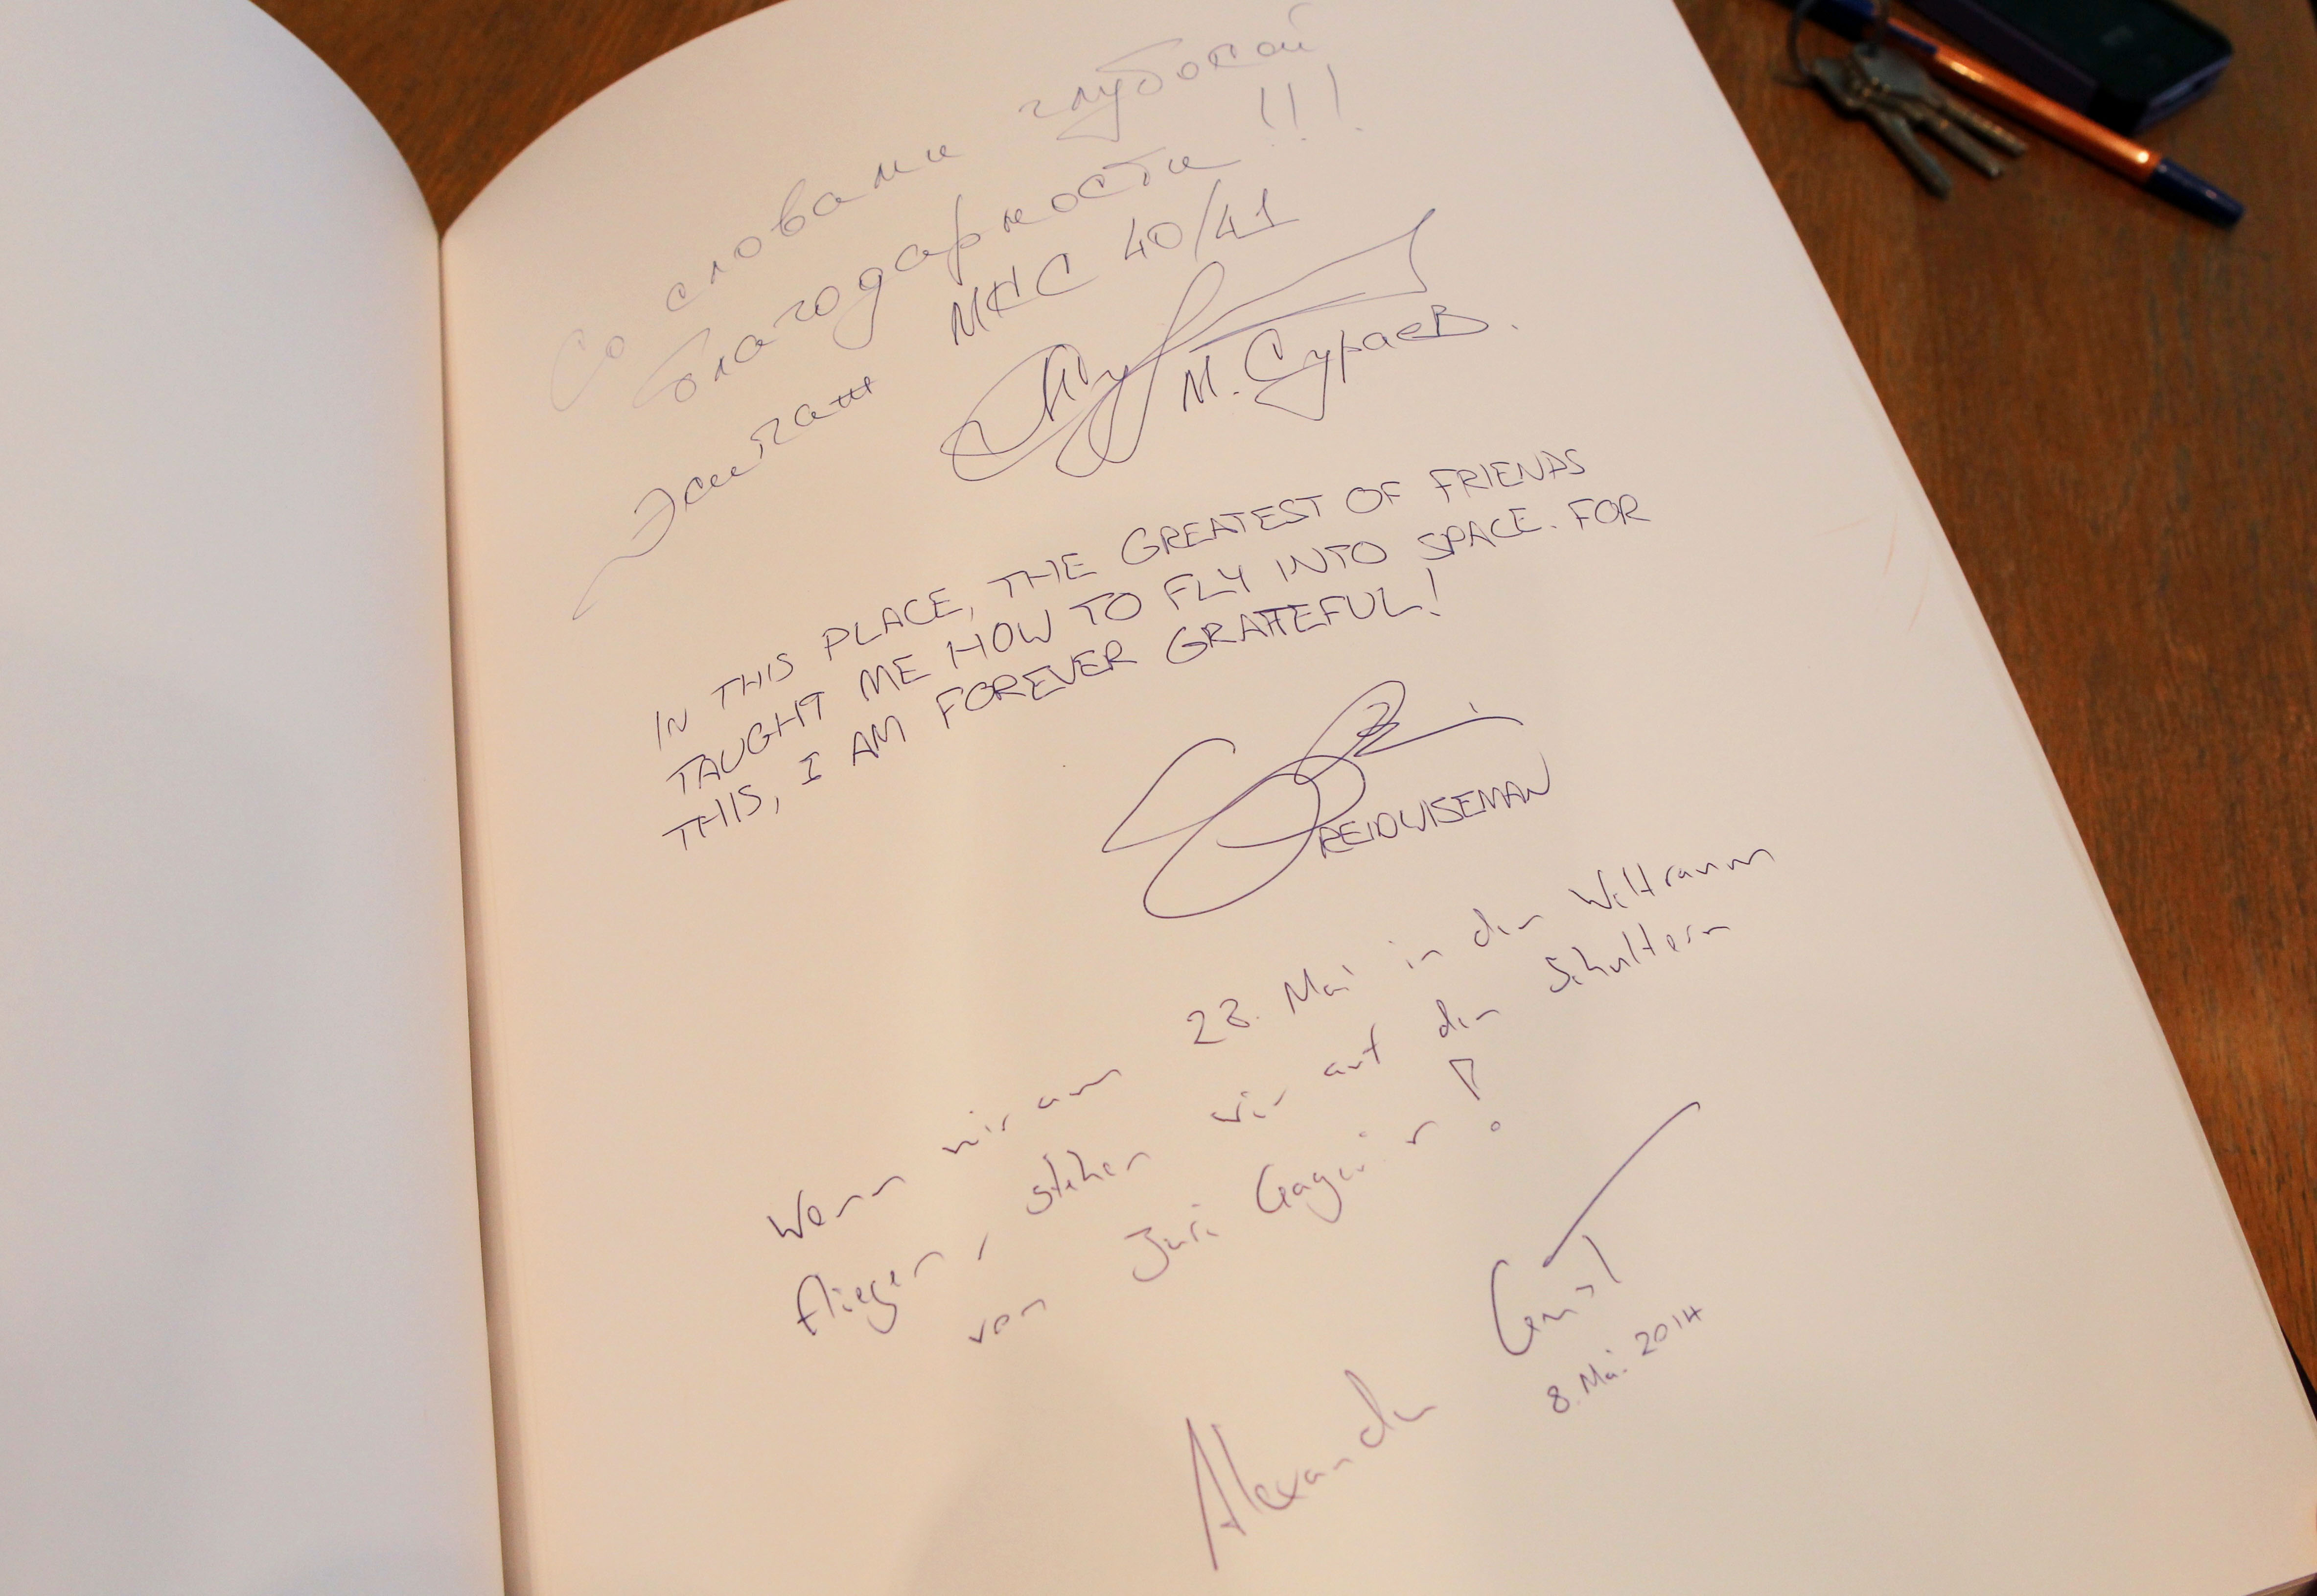 Со словами глубокой
благодарности!!!
Экипаж МКС 40/41
М. Сураев.
IN THIS PLACE, THE GREATEST OF FRIENDS
TAUGHT ME HOW TO FLY INTO SPACE. FOR
THIS, I AM FOREVER GRATEFUL!
REID WISEMAN
Wenn wir am 28. Mai in den Weltraum
fliegen, stehen wir auf den Schultern
von Juri Gagarin!
Alexander Gerst
8. Mai 2014